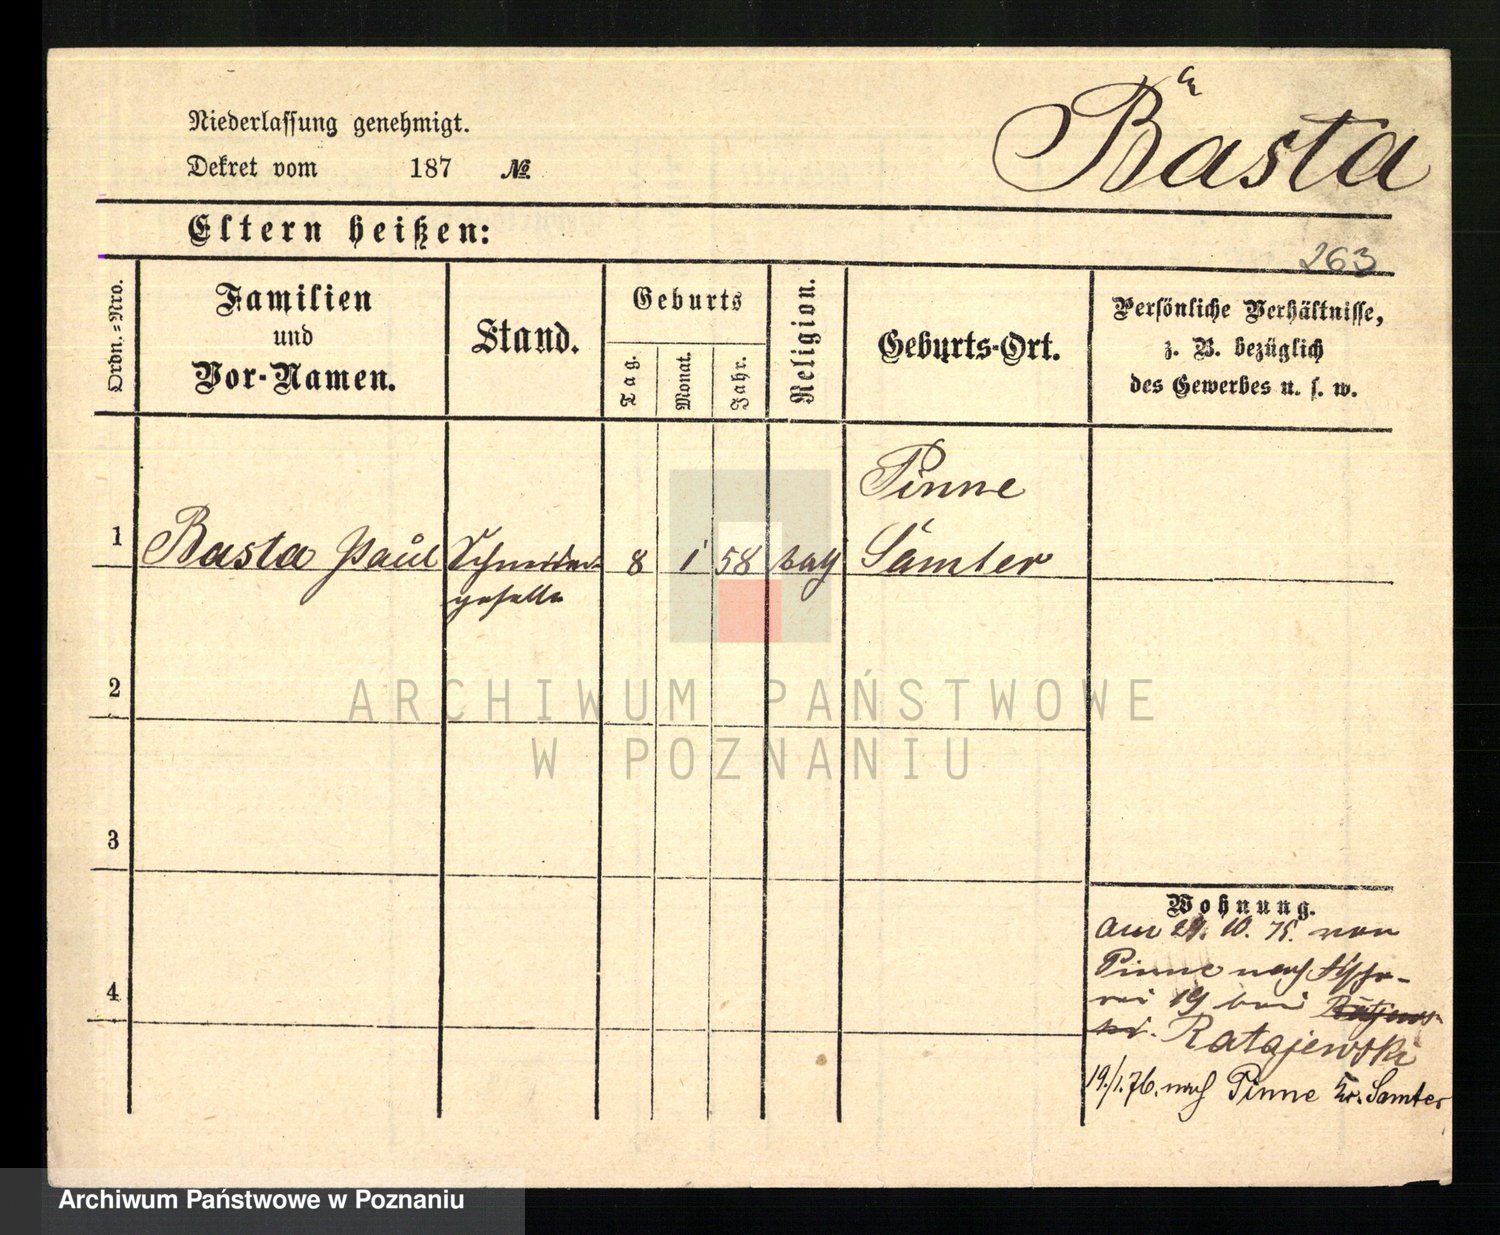 Basta
Niederlassung genehmigt.
Dekret vom 187 №
Eltern heißen:
263
Ordn.-Nro.
Familien
und
Vor-Namen.
Stand.
Geburts
Tag.
Monat.
Jahr.
Religion.
Geburts-Ort.
Persönliche Verhältnisse,
z. B. bezüglich
des Gewerbes u. s. w.
Pinne
1 Basta Paul Schneider- 8 1 58 kath Samter
geselle
2
ARCHIWUM PAŃSTWOWE
W POZNANIU
3
Wohnung.
am 10. 75. von
Pinne nach Fische-
rei 19 bei
Ratajewski
4
19./1.76. nach Pinne Kr. Samter
Archiwum Państwowe w Poznaniu